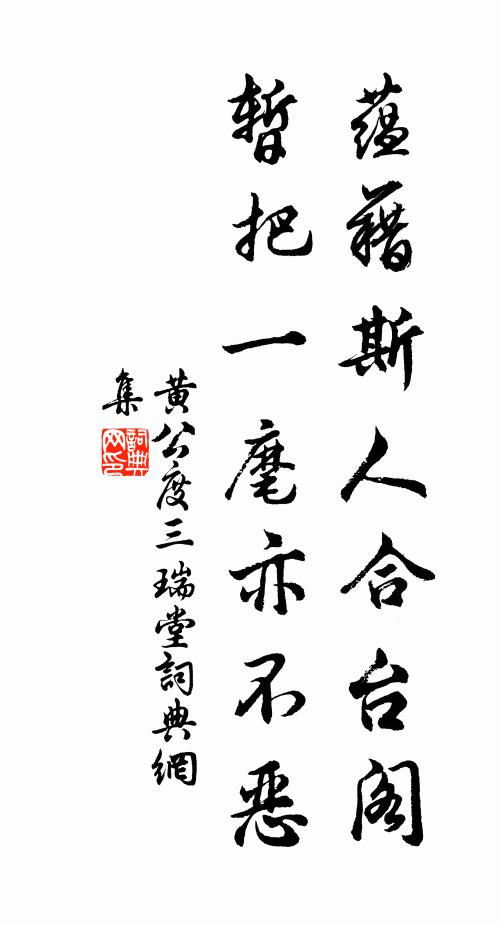 蕴藉斯人合台阁
暂把一麾亦不恶
黄公度三瑞堂詞典網
集
詞典网印